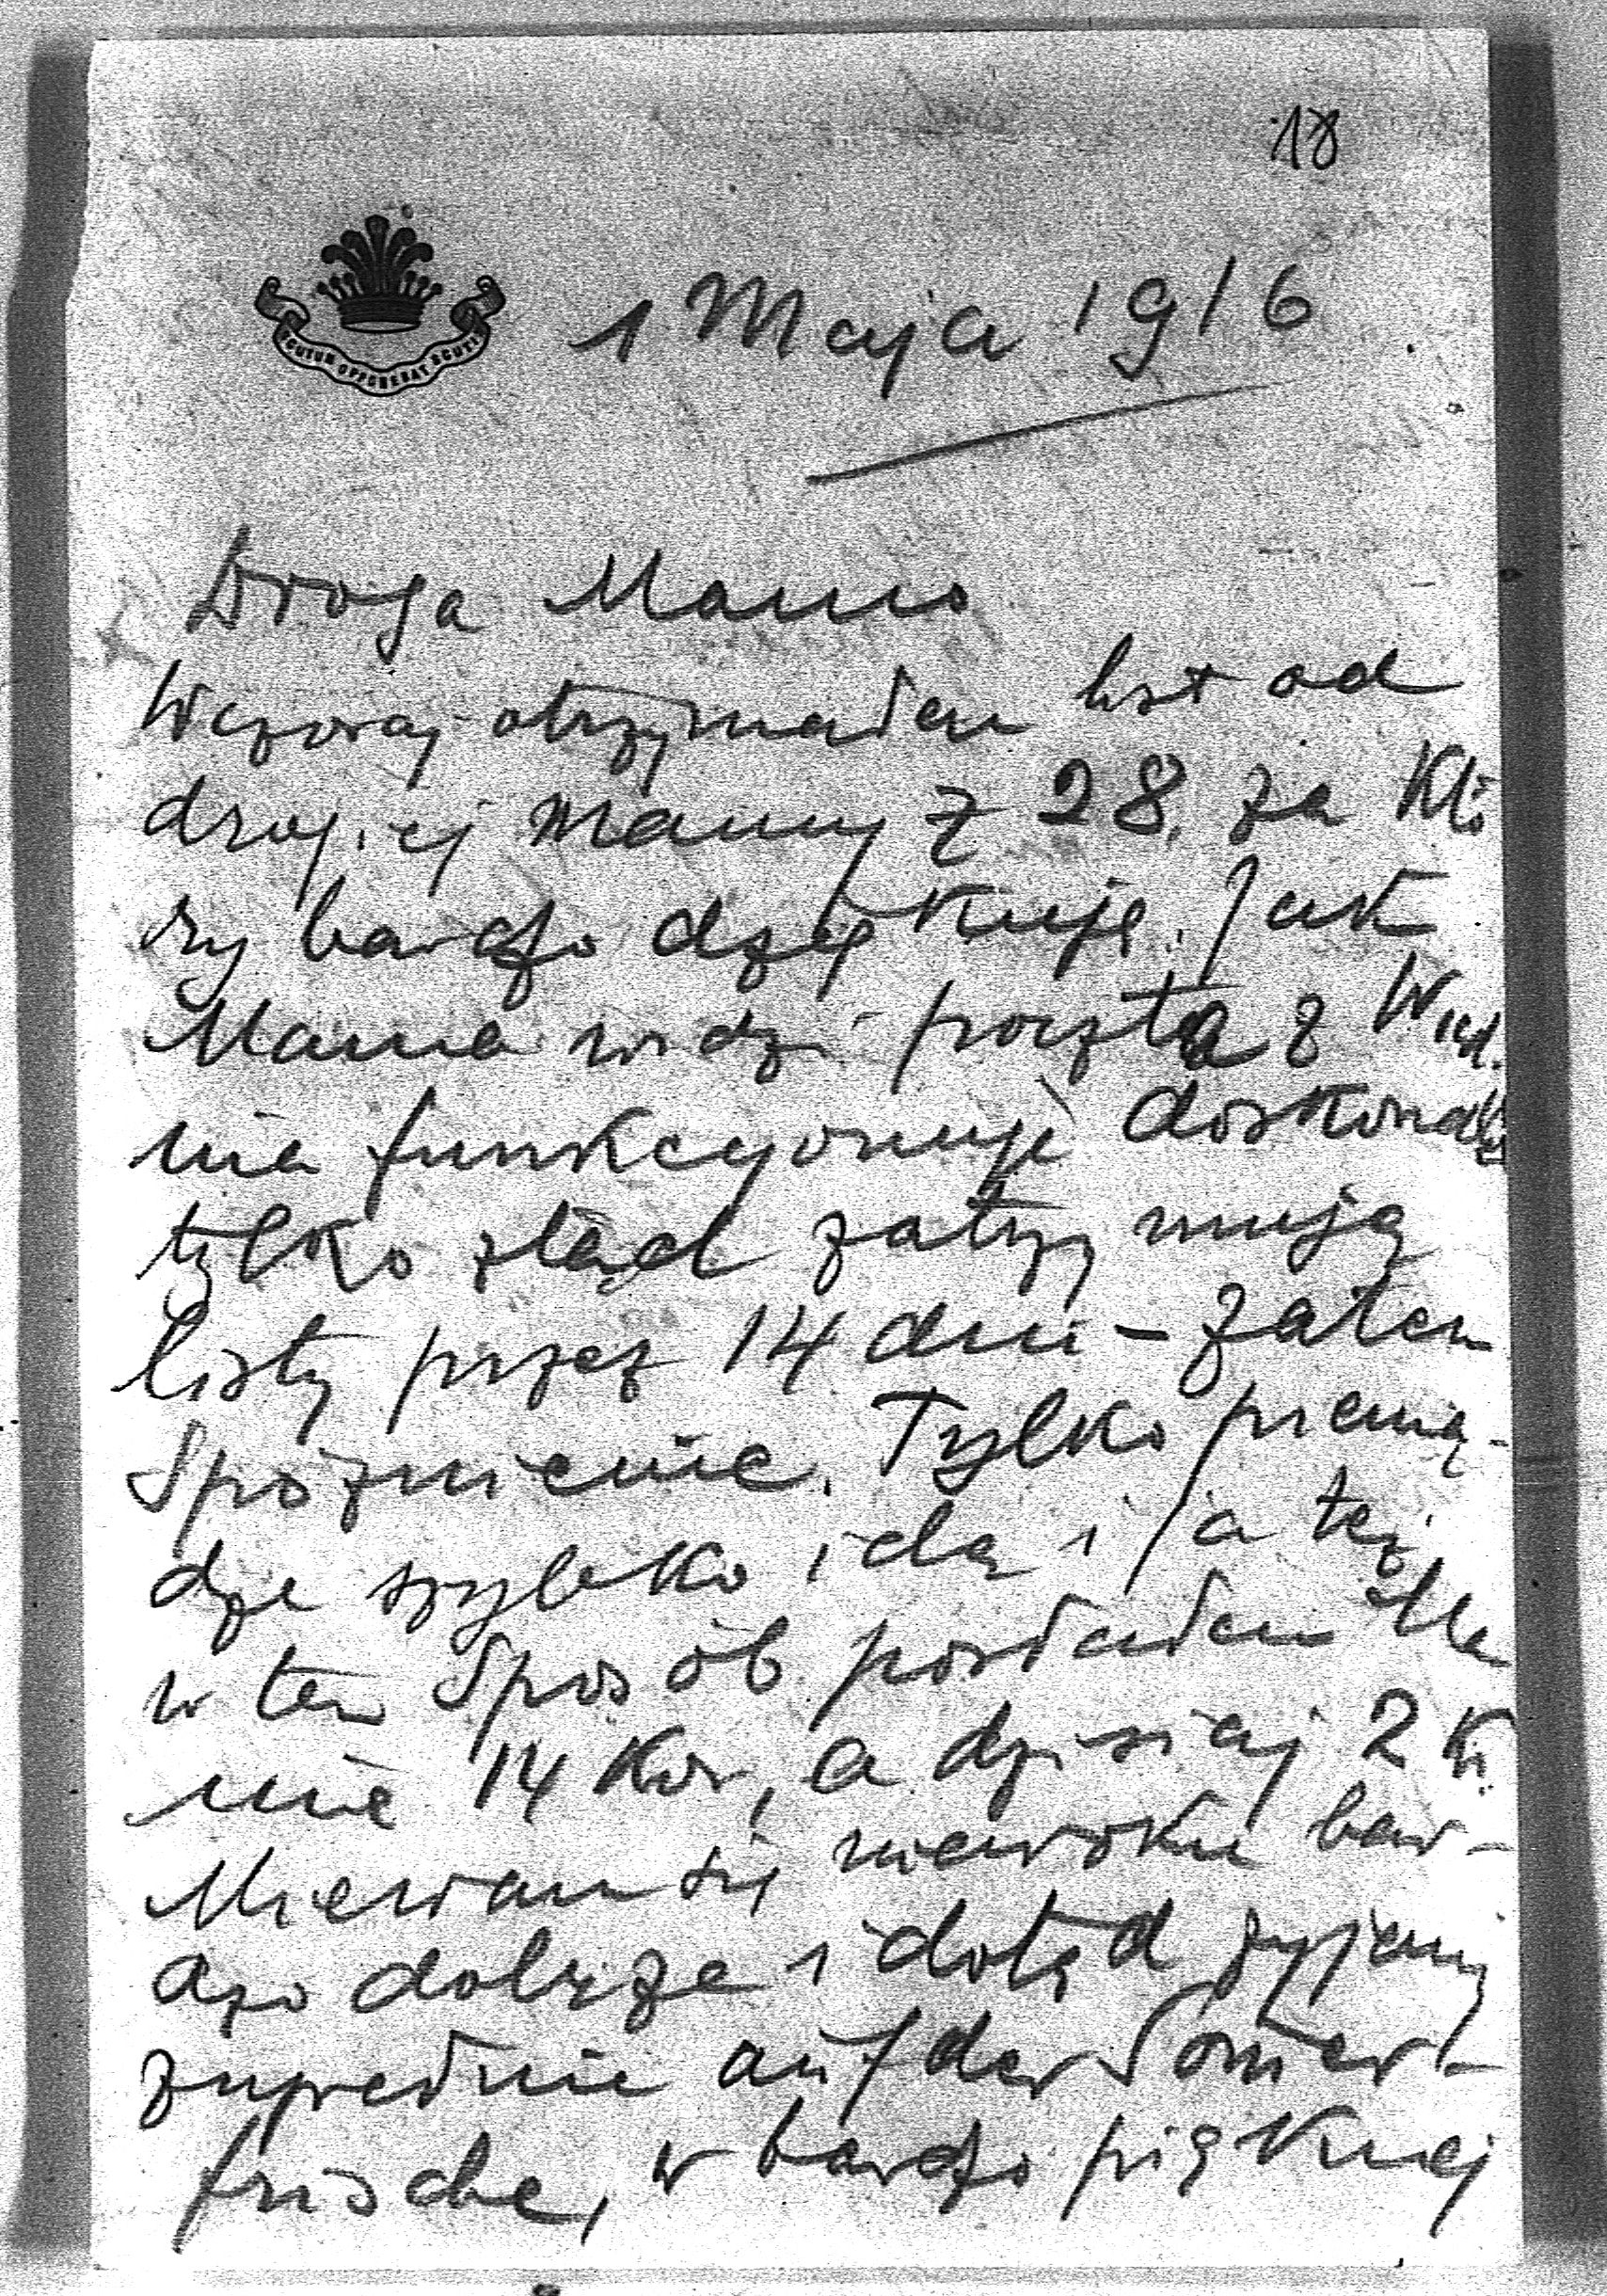 18
SCUTUM OPPONEBAT SCUTI
1 Maja 1916
Droga Mamo
Wczoraj otrzymałem list od
drogiej Mamy z 28. za któ
ry bardzo dziękuję. Jak
Mama widzi poczta z Wied.
nia funkcyonuje doskonale
tylko ztąd zatrzymują
listy przez 14 dni – zatem
spóźnienie. Tylko pienią-
dze szybko idą i ja też
w ten sposób posłałem
14 Kor, a dzisiaj 2 K
Miewam się bar-
dzo dobrze i dotąd żyjemy
zupełnie auf der Somer-
frische, w bardzo pięknej